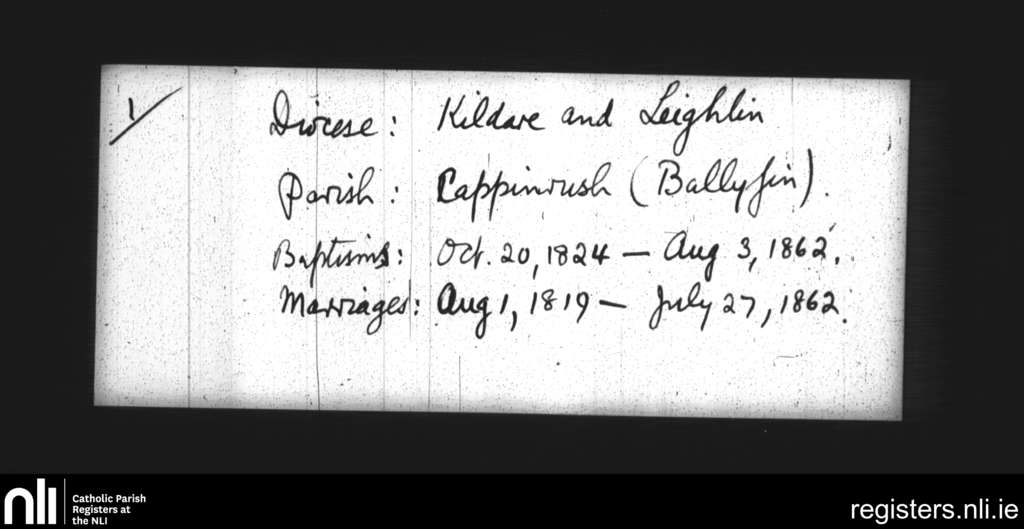 1/
Diocese: Kildare and Leighlin
Parish: Cappinrush (Ballyfin).
Baptisms: Oct. 20, 1824 — Aug 3, 1862.
Marriages: Aug 1, 1819 — July 27, 1862.
nli
Catholic Parish
Registers at
the NLI
registers.nli.ie